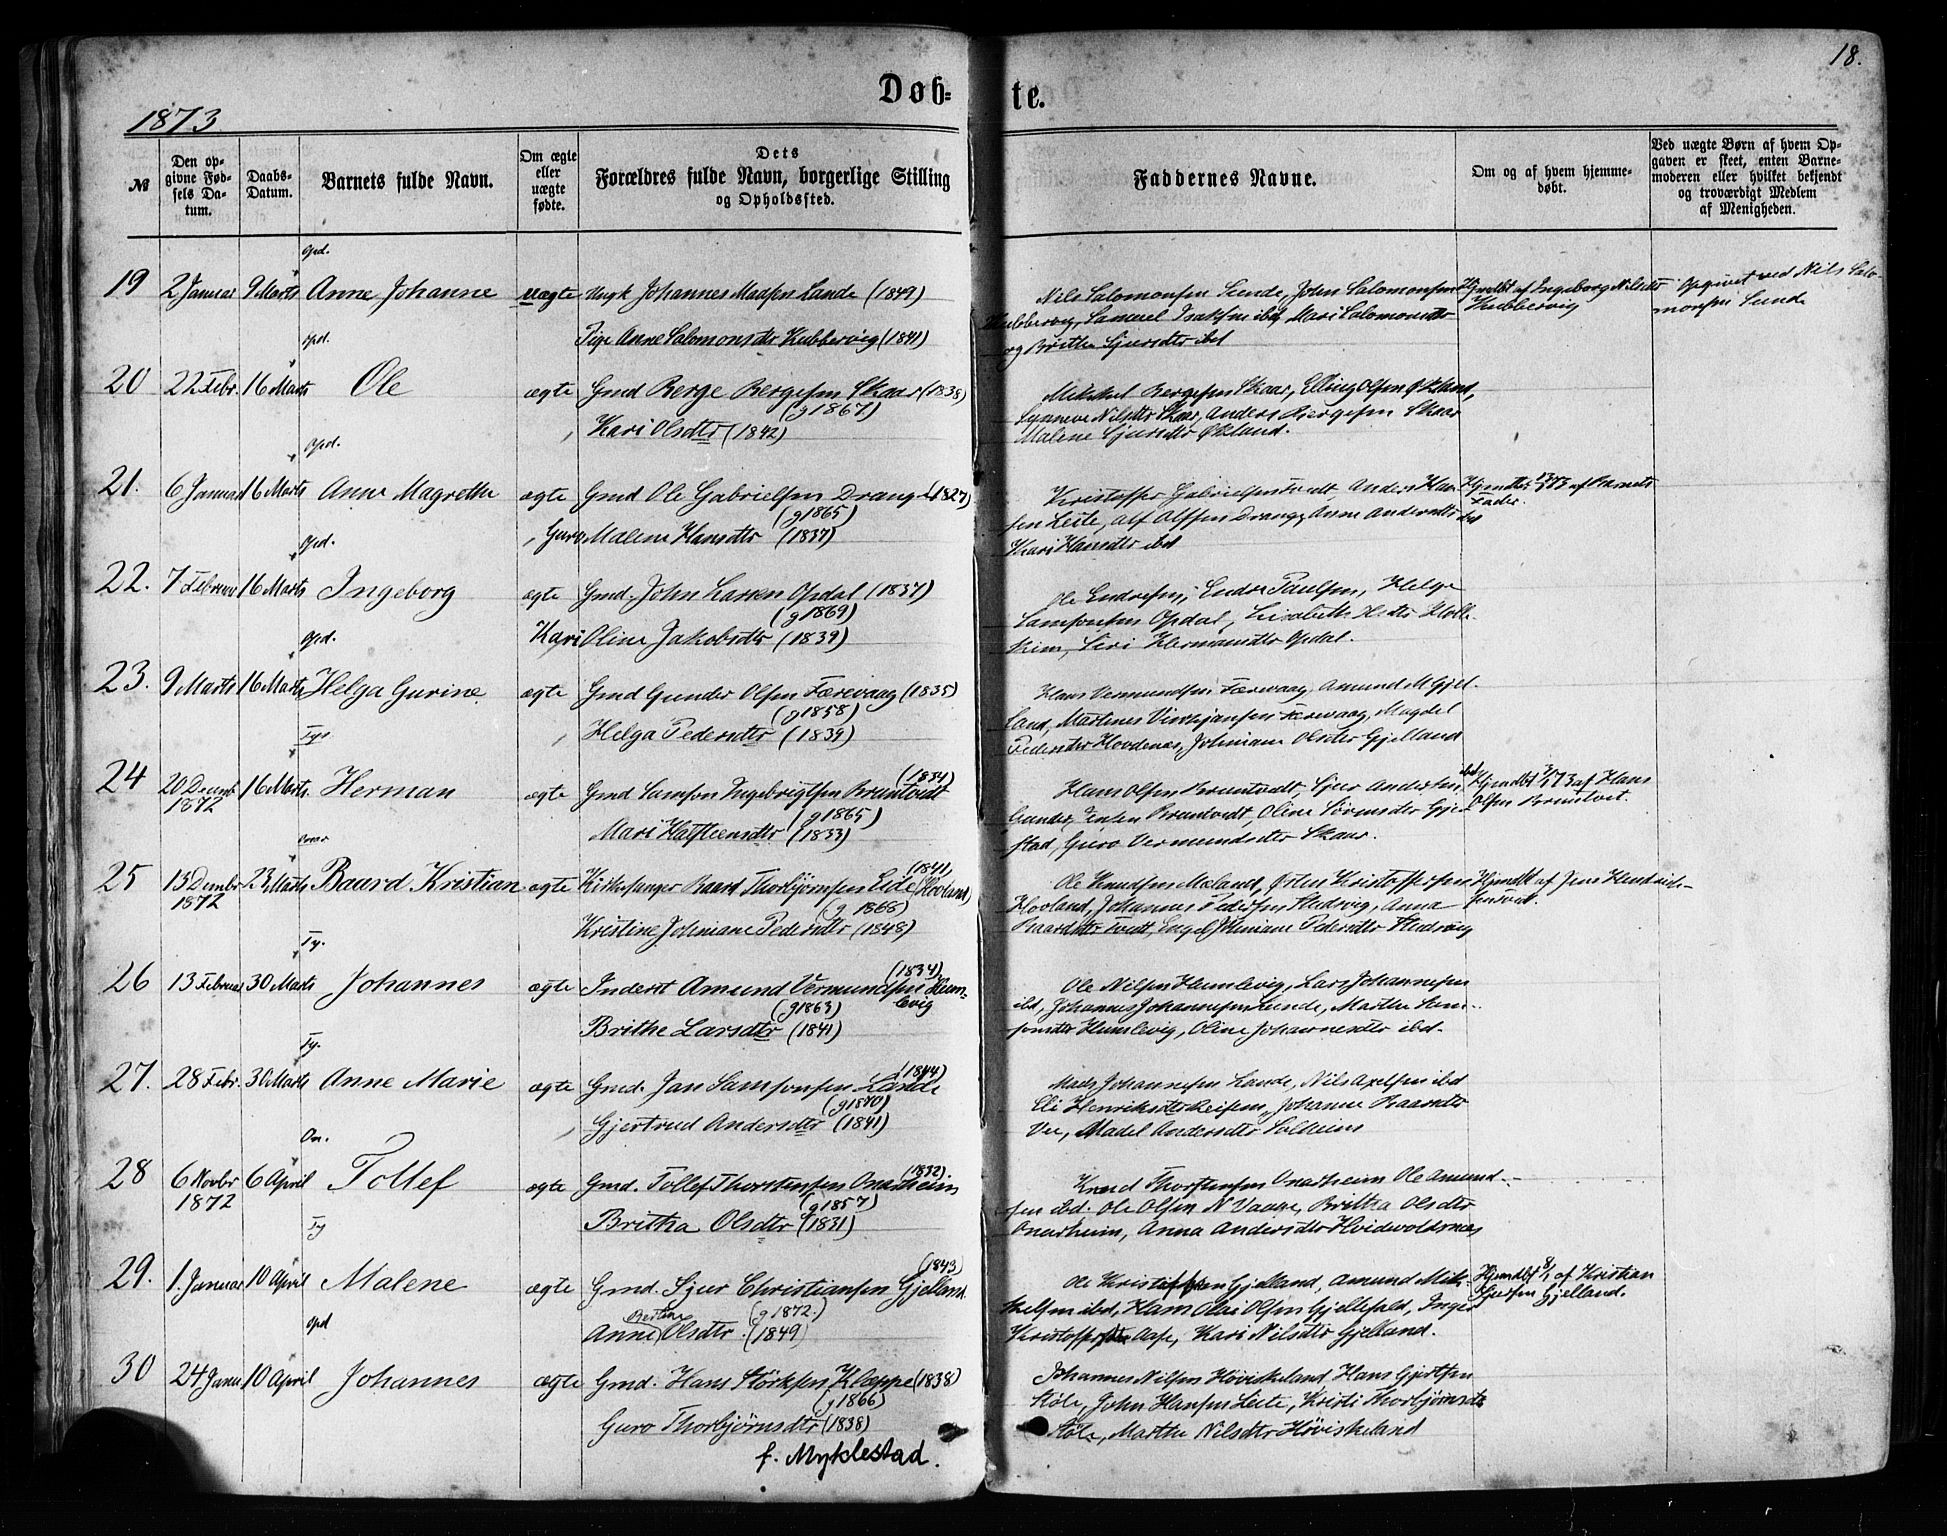 18.
Døb-
te.
1873
№
Den op-
givne Fød-
sels Da-
tum.
Daabs-
Datum.
Barnets fulde Navn.
Om ægte
eller
uægte
fødte.
Dets
Forældres fulde Navn, borgerlige Stilling
og Opholdssted.
Faddernes Navne.
Om og af hvem hjemme-
døbt.
Ved uægte Børn af hvem Op-
gaven er skeet, enten Barne-
moderen eller hvilket bekjendt
og troværdigt Medlem
af Menigheden.
Opd.
19 2 Januar 9 Marts Anne Johanne uægte Ungk Johannes Madsen Lande (1849)
Pige Anne Salomonsdtr Kubbervig (1841)
Nils Salomonsen Sunde, John Salomonsen
Kubbervig, Samuel Isaksen ibd, Mari Salomonsdtr
og Brithe Sjursdtr ibd
Hjmdbt af Ingeborg Nilsdtr
Kubbervig
Opgivet ved Nils Salo-
monsen Sunde
Opd.
20 22 Febr. 16 Marts Ole ægte Gmd Berge Bergesen Skaar (1838)
(g 1867)
Kari Olsdtr (1842)
Mikkel Bergesen Skaar, Elling Olsen Økland,
Synneve Nilsdtr Skaar, Anders Bergesen Skaar
Malene Sjursdtr Økland.
Opd.
21. 6 Januar 16 Marts Anne Magrethe ægte Gmd Ole Gabrielsen Drange (1827)
(g 1865)
Guro Malene Hansdtr (1837)
Kristoffer Gabrielsen Tvedt, Anders Han-
sen Leite, Alf Olssen Drange, Anne Andersdtr ibd
Kari Hansdtr ibd
af Barnets
Fader.
Opd.
22. 7 Februar 16 Marts Ingeborg ægte Gmd. John Larsen Opdal (1837)
(g 1869)
Kari Oline Jakobsdtr (1839)
Ole Endresen, Endre Paulsen, Helge
Samsonsen Opdal, Lisabeth Hsdtr
Siri Hermansdtr Opdal.
Opd.
23. 9 Marts 16 Marts Helga Gurine ægte Gmd Gunder Olsen Færevaag (1835)
(g 1858)
Helga Pedersdtr (1839)
Hans Vermundsen Færevaag, Amund M Gjel-
land, Martines Færevaag, Magdel
Pedersdtr Hovdenæs, Johanne Olsdtr Gjelland
Tys
24 20 Decmb 1872 16 Marts. Herman ægte Gmd Samson Ingebrigtsen Bruntvedt (1834)
(g 1865)
Mari Halsteensdtr (1833)
Hans Olsen Bruntvedt, Sjur Andersen ibd
Gunder Jensen Bruntvedt, Oline Sørensdtr Gjer-
stad, Guro Vermundsdtr Skaar.
Hjmdbt 3/1 73 af Hans
Olsen Bruntvet.
Onar
25 13 Decmbr 1872 23 Marts Baard Kristian ægte Kirkesanger Baard Thorbjørnsen Eide (Hovland) (1841)
(g 1868)
Kristine Johniane Pedersdtr (1848)
Ole Knudsen Meland, Østen Kristoffersen
Hovland, Johannes Pedersen Hudvig, Anna
Baardsdtr Tvedt, Engel Johniane Pedersdtr Hudvig
Hjmdbt af Jens Henrik-
sen
Ty.
26 13 Februar 30 Marts Johannes ægte Inderst Amund Vermundsen Humlevig (1834)
(g 1863)
Brithe Larsdtr (1841)
Ole Nilsen Humlevig, Lars Johannesen
ibd, Johannes Johannesen Sunde, Marthe Sam-
sonsdtr Humlevig, Oline Johannesdtr ibd.
Ty.
27. 28 Febr. 30 Marts Anne Marie ægte Gmd. Jan Samsonsen Lande (1844)
(g 1870)
Gjertrud Andersdtr (1841)
Mads Johannesen Lande, Nils Axelsen ibd
Eli Henriksdtr Johanne Baardsdtr
Vee, Madel Andersdtr Solheim
On.
28 6 Novbr 1872 6 April Tollef ægte Gmd. Tollef Thorstensen Onarheim (1832)
(g 1857)
Britha Olsdtr (1831)
Knud Thorstensen Onarheim Ole Amund-
sen ibd. Ole Olsen N Vaage, Britha Olsdtr
Onarheim, Anna Andersdtr Hvidevoldsnæs
Ty
29. 1. Januar 10 April Malene ægte Gmd. Sjur Christiansen Gjelland. (1843)
(g 1872.)
Anne Bertine Olsdtr. (1849)
Ole Kristoffersen Gjelland, Amund Mik-
kelsen ibd, Hans Olai Olsen Gjellefald, Inger
Kristoffersdtr Aase, Kari Nilsdtr Gjelland.
Hjmdbt 8/1 af Kristian
Sjursen Gjelland.
Opd
30 24 Janu. 10 April Johannes ægte Gmd. Hans Størksen Kleppe (1838)
(g 1866)
Guro Thorbjørnsdtr (1838)
f. Myklestad.
Johannes Nilsen Høviskeland Hans Gjertsen
Støle, John Hansen Leite, Kristi Thorbjørnsdtr
Støle, Marthe Nilsdtr Høviskeland